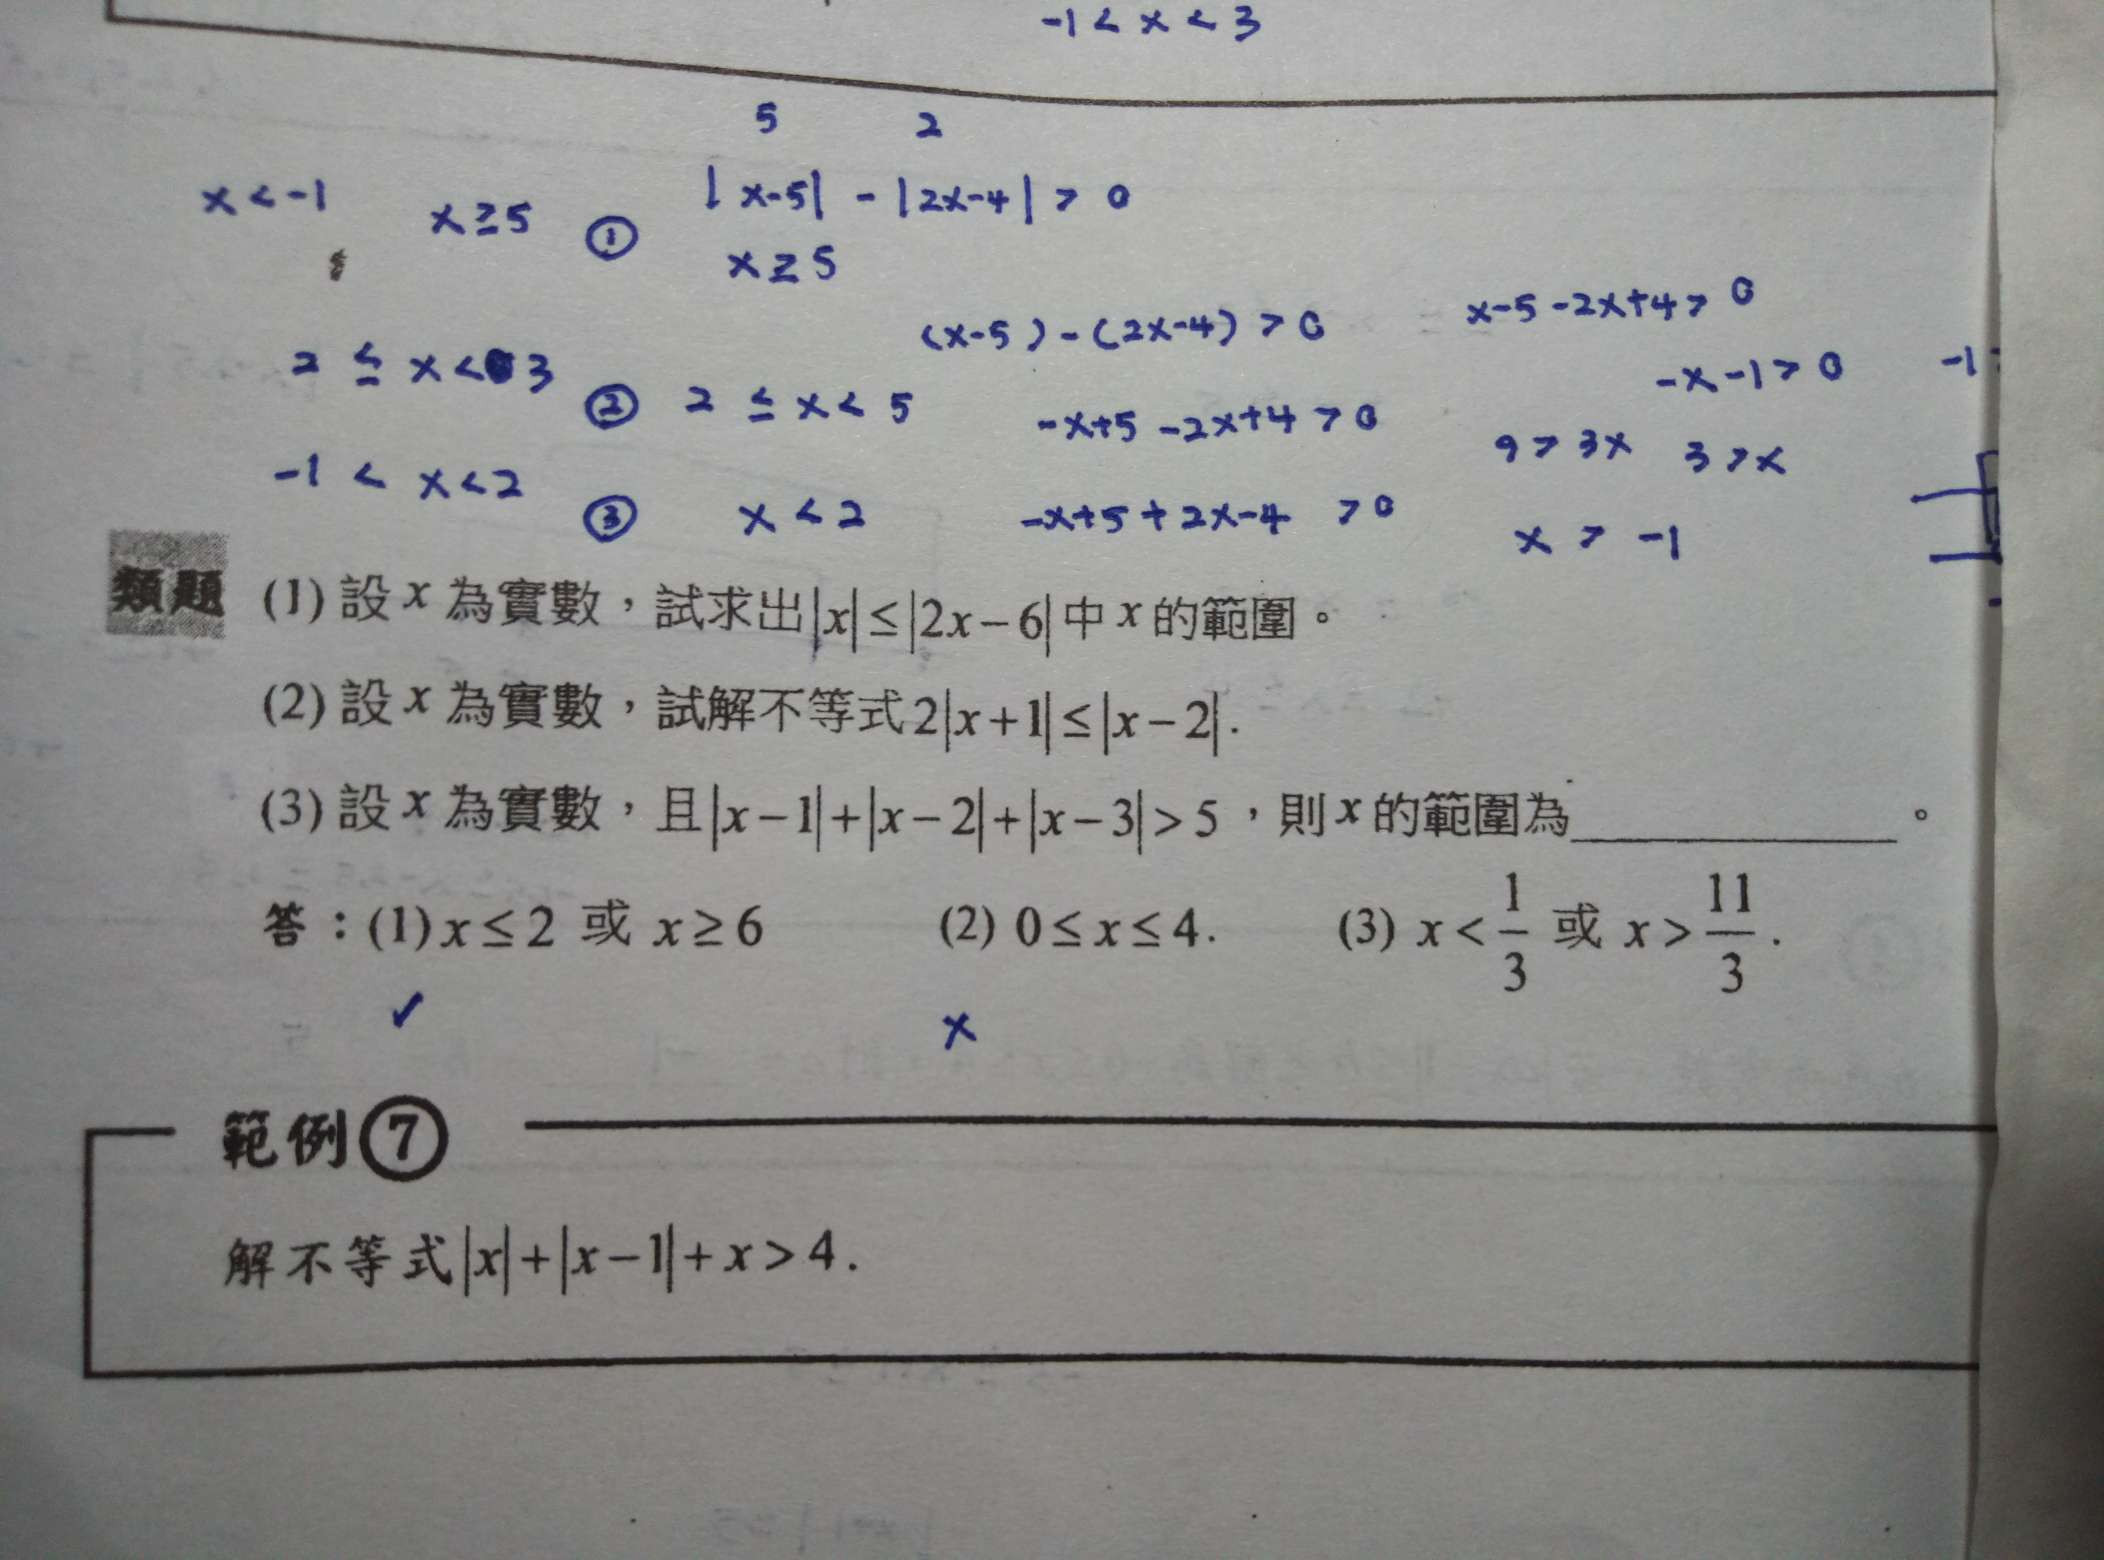 -1 < x < 3
5 2
x < -1 x ≥ 5 ① |x-5| - |2x-4| > 0
x ≥ 5
(x-5) - (2x-4) > 0 x-5-2x+4 > 0
-x-1 > 0 -1 >
2 ≤ x < 3 ② 2 ≤ x < 5 -x+5-2x+4 > 0 9 > 3x 3 > x
-1 < x < 2 ③ x < 2 -x+5+2x-4 > 0 x > -1
類題 (1) 設 x 為實數,試求出|x| ≤ |2x-6| 中 x 的範圍。
(2) 設 x 為實數,試解不等式 2|x+1| ≤ |x-2|.
(3) 設 x 為實數,且|x-1|+|x-2|+|x-3| > 5,則 x 的範圍為__________。
答:(1) x ≤ 2 或 x ≥ 6 (2) 0 ≤ x ≤ 4. (3) x < 1/3 或 x > 11/3.
✓ x
範例⑦
解不等式|x|+|x-1|+x > 4.